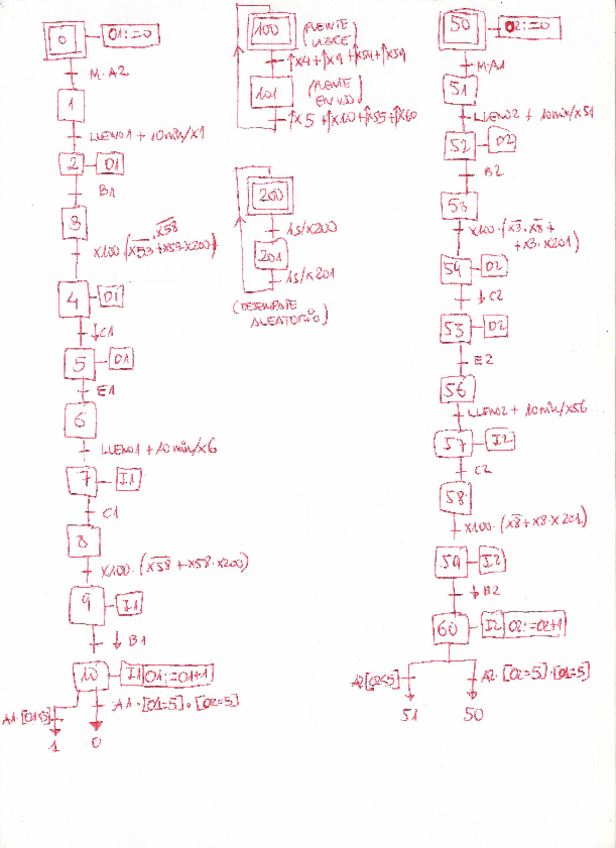 0
O1:=0
M·A2
1
LLENO1 + 10min/X1
2
D1
B1
3
X100·(X̅5̅3̅·X̅5̅8̅+X53·X200)
4
D1
↓C1
5
D1
E1
6
LLENO1 + 10min/X6
7
I1
C1
8
X100·(X̅5̅8̅+X58·X200)
9
I1
↓B1
10
I1
O1:=O1+1
A1·[O1<5]
A1·[O1=5]·[O2=5]
1
0
100
(PUENTE
LIBRE)
↑X4+↑X9+↑X54+↑X59
101
↑X5+↑X10+↑X55+↑X60
200
1s/X200
201
1s/X201
(DESEMPATE
ALEATORIO)
50
O2:=0
M·A1
51
LLENO2 + 10min/X51
52
D2
B2
53
X100·(X̅3̅·X̅8̅+
+X3·X201)
54
D2
↓C2
53
D2
E2
56
LLENO2 + 10min/X56
57
I2
C2
58
X100·(X̅8̅+X8·X201)
59
I2
↓B2
60
I2
O2:=O2+1
A2[O2<5]
A2·[O2=5]·[O1=5]
51
50